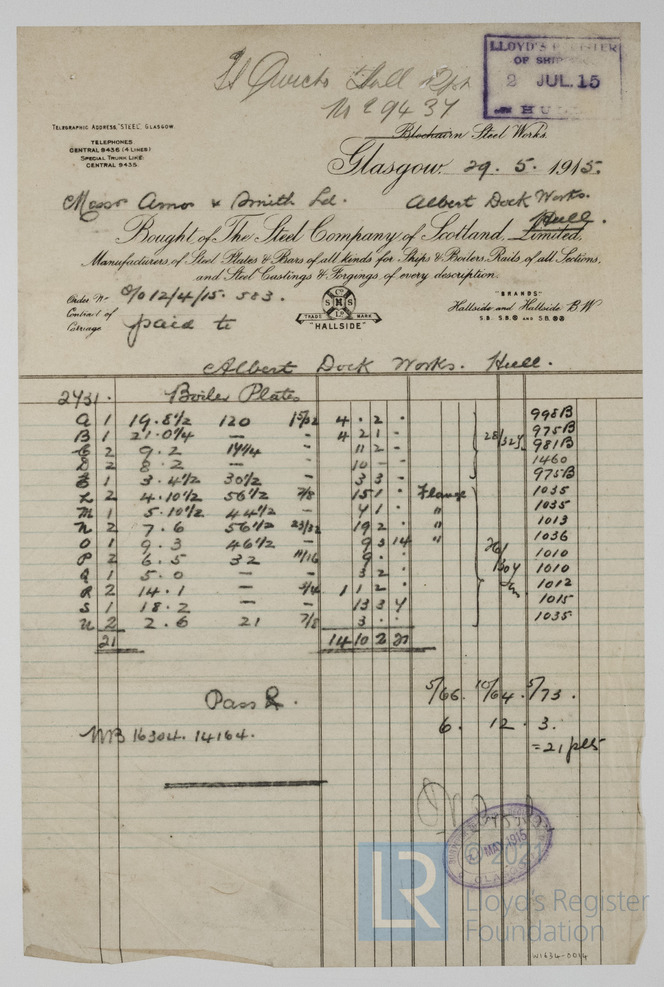 Hull Rpt
No 29437
LLOYD'S REGISTER
OF SHIPPING
2 JUL. 15
HULL
TELEGRAPHIC ADDRESS, "STEEL," GLASGOW.
TELEPHONES
CENTRAL 9436 (4 LINES)
SPECIAL TRUNK LINE
CENTRAL 9435.
Blochairn Steel Works.
Glasgow, 29. 5. 1915.
Messrs Amos & Smith Ld. Albert Dock Works.
Hull.
Bought of The Steel Company of Scotland, Limited,
Manufacturers of Steel Plates & Bars of all kinds for Ships & Boilers, Rails of all Sections,
and Steel Castings & Forgings of every description.
Order No O/O 12/4/15. 583.
Contract of
Carriage paid to
TRADE MARK
"HALLSIDE"
"BRANDS"
Hallside and Hallside B W
S.B. S.B. AND S.B.
Albert Dock Works. Hull.
2431. Boiler Plates
A 1 19.8 1/2 120 15/32 4 . 2 . 998B
B 1 21.0 1/4 — - 4 2 1 - 28/32 975B
C 2 9.2 — 11 2 - 981B
D 2 8.2 — - 10 - - 1460
E 1 3.4 1/2 30 1/2 - 3 3 - 975B
L 2 4.10 1/2 56 1/2 7/8 15 1 . Flange 1035
M 1 5.10 1/2 44 1/2 - 7 1 . " 1035
N 2 7.6 56 1/2 23/32 19 2 . " 1013
O 1 9.3 46 1/2 - 9 3 14 " 1036
P 2 6.5 32 11/16 9 . 26/30 1010
Q 1 5.0 — - 3 2 . 1010
R 2 14.1 — 3/4 1 1 2 . 1012
S 1 18.2 — - 13 3 7 1015
U 2 2.6 21 7/8 3 . 1035
21 14 10 2 21
5/66. 10/64. 5/73.
Pass
6. 12. 3.
NB 16304. 14164.
= 21 plts
MAY 1915
GLASGOW
© 2021
LR
Lloyd's Register
Foundation
W1634-0014